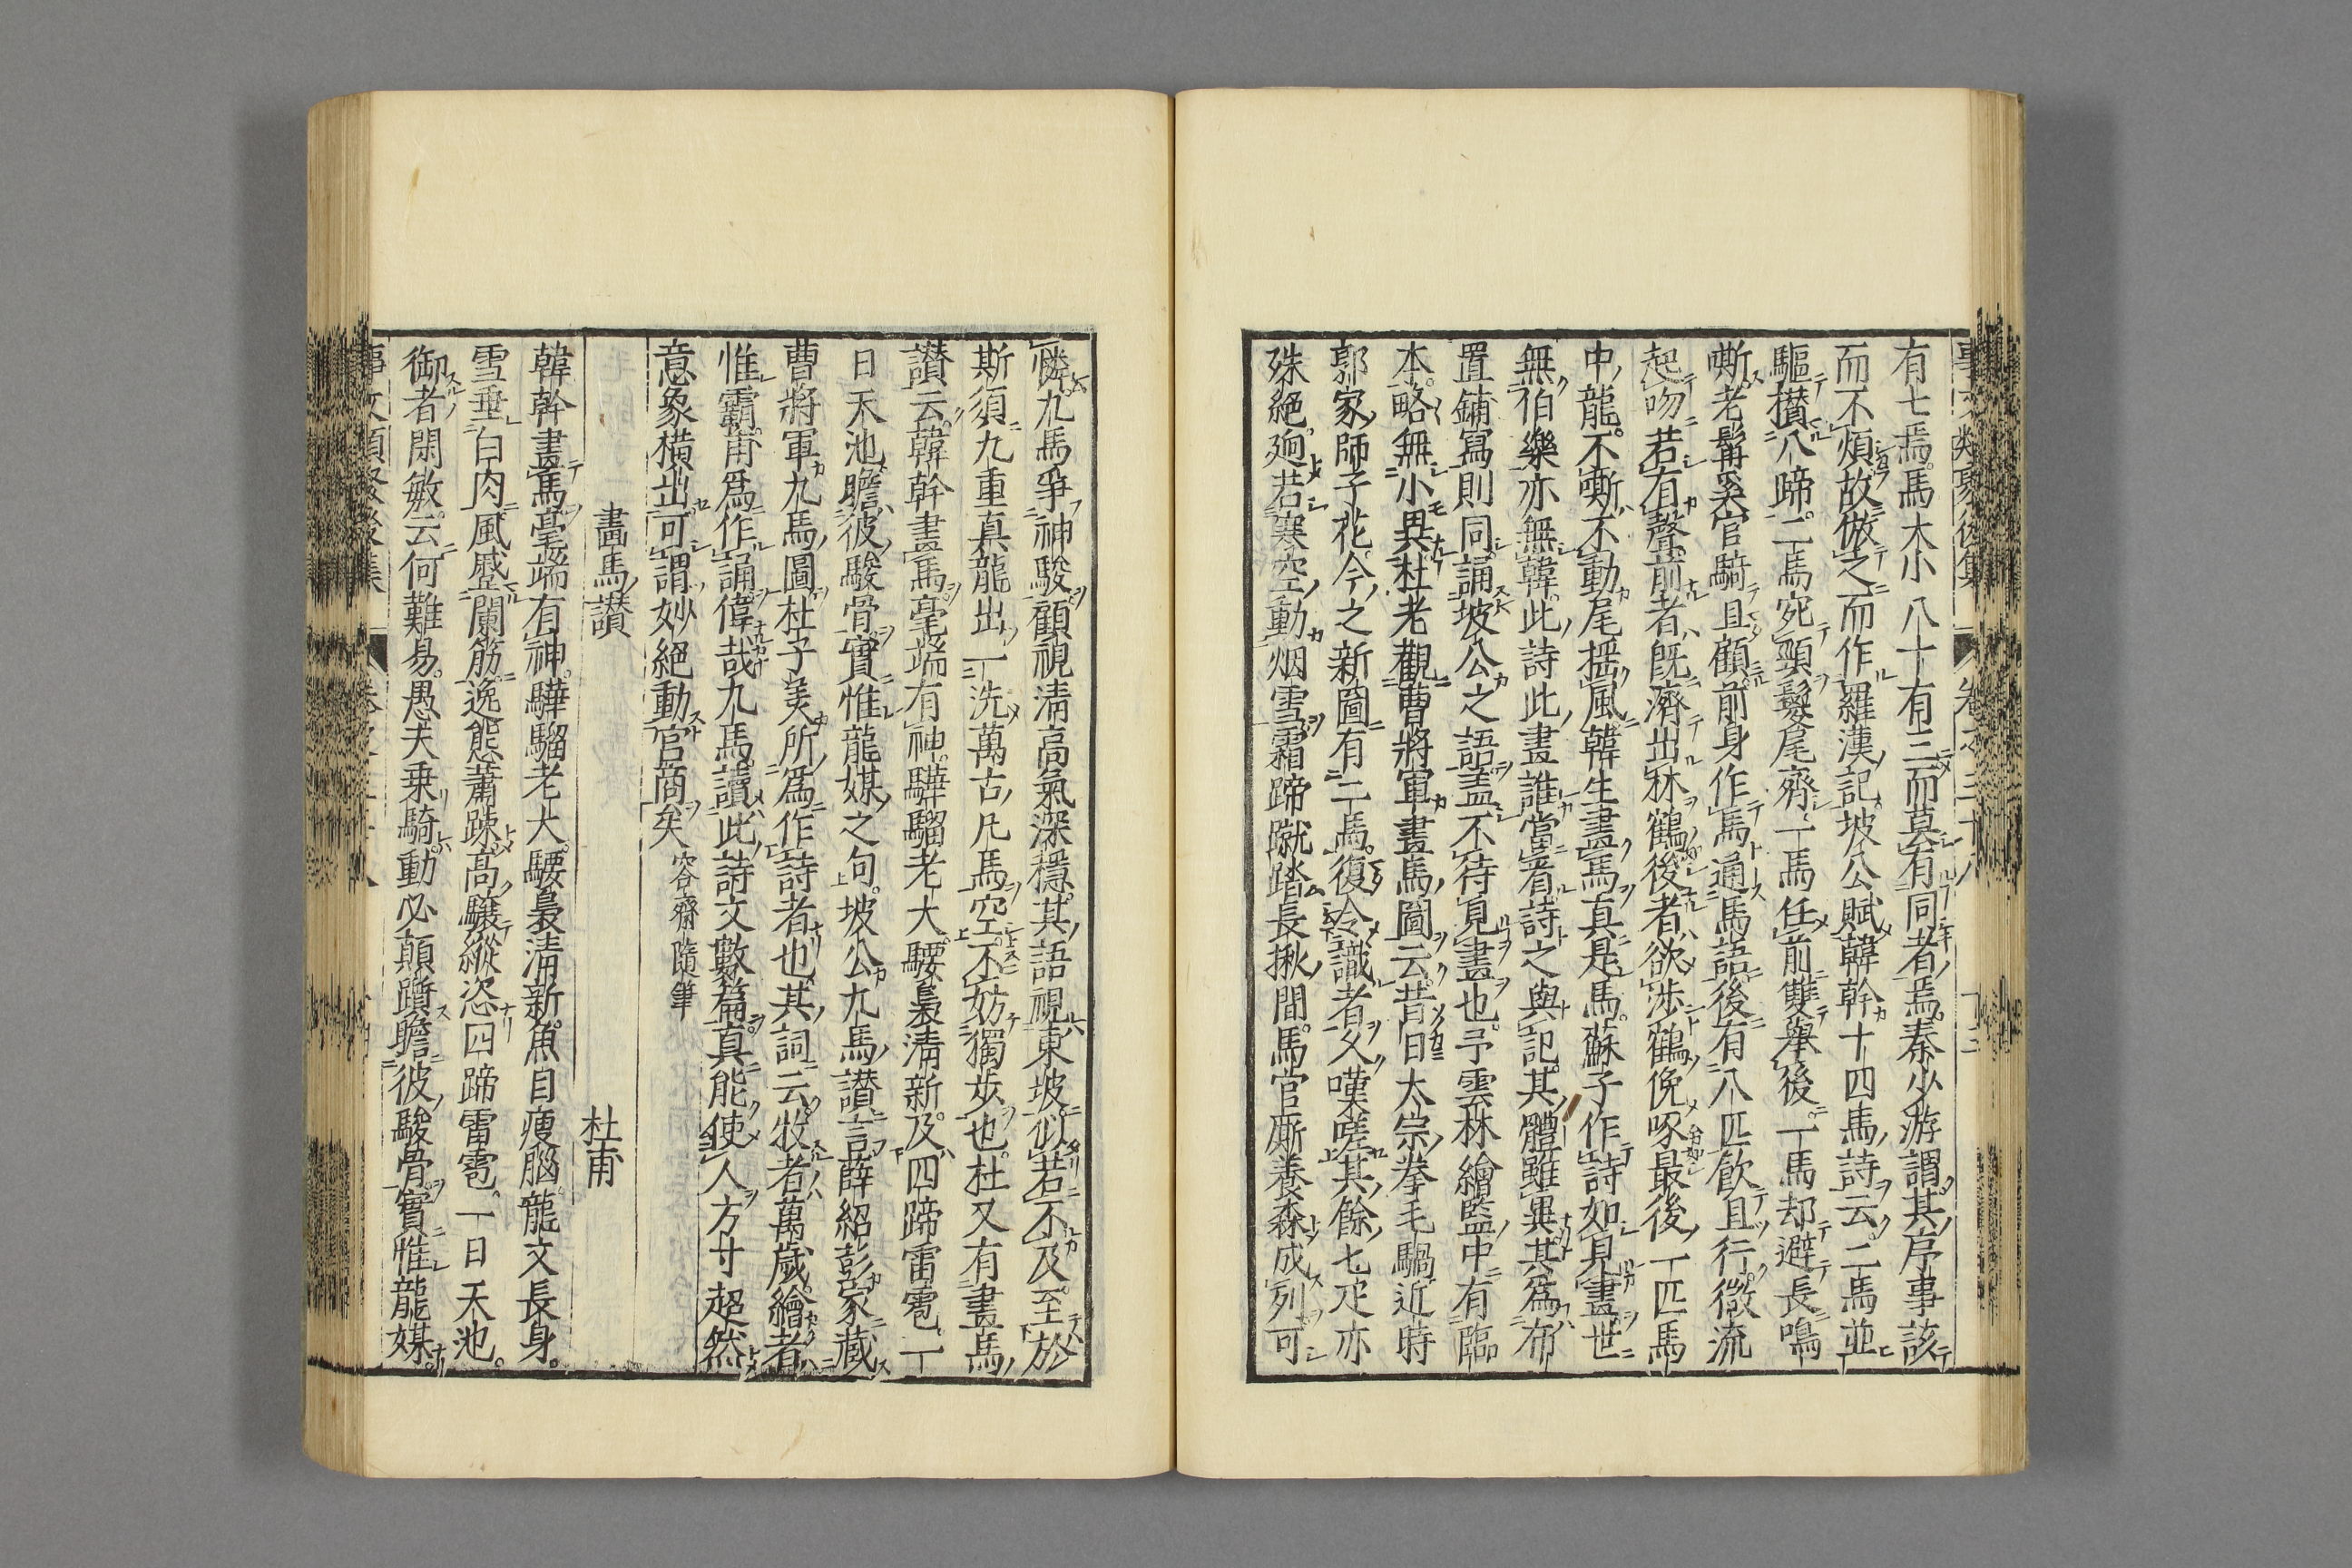 有七焉馬大小八十有三而莫有同者焉秦少游謂其序事該
而不煩故倣之而作羅漢記坡公賦韓幹十四馬詩云二馬並
驅攅八蹄二馬宛頸鬉尾齊一馬任前雙舉後一馬却避長鳴
嘶老髯奚官騎且顧前身作馬通馬語後有八匹飲且行微流
起吻若有聲前者旣濟出林鶴後者欲渉鶴俛啄最後一匹馬
中龍不嘶不動尾揺風韓生畫馬真是馬蘇子作詩如見畫世
無伯樂亦無韓此詩此畫誰當看詩之與記其體雖異其爲布
置鋪寫則同誦坡公之語盖不待見畫也予雲林繪監中有臨
本略無小異杜老觀曹將軍畫馬圖云昔日太宗拳毛騧近時
郭家師子花今之新圖有二馬復令識者乆嘆嗟其餘七疋亦
殊絕逈若寒空動烟雪霜蹄蹴踏長楸間馬官厮養森成列可
憐九馬爭神駿顧視清高氣深穩其語視東坡似若不及至於
斯須九重真龍出一洗萬古凡馬空不妨獨歩也杜又有畫馬
讃云韓幹畫馬毫端有神驊騮老大騕褭清新及四蹄雷雹一
日天池瞻彼駿骨實惟龍媒之句坡公九馬讃言薛紹彭家藏
曹將軍九馬圖杜子美所爲作詩者也其詞云牧者萬歲繪者
惟霸甫爲作誦偉哉九馬讀此詩文數篇真能使人方寸超然
意象横出可謂妙絕動宫商矣 容齋隨筆
畫馬讃 杜甫
韓幹畫馬毫端有神驊騮老大騕褭清新魚目瘦腦龍文長身
雪垂白肉風蹙蘭筋逸態蕭踈高驤縱恣四蹄雷雹一日天池
御者閑敏云何難易愚夫乗騎動必顛躓瞻彼駿骨實惟龍媒